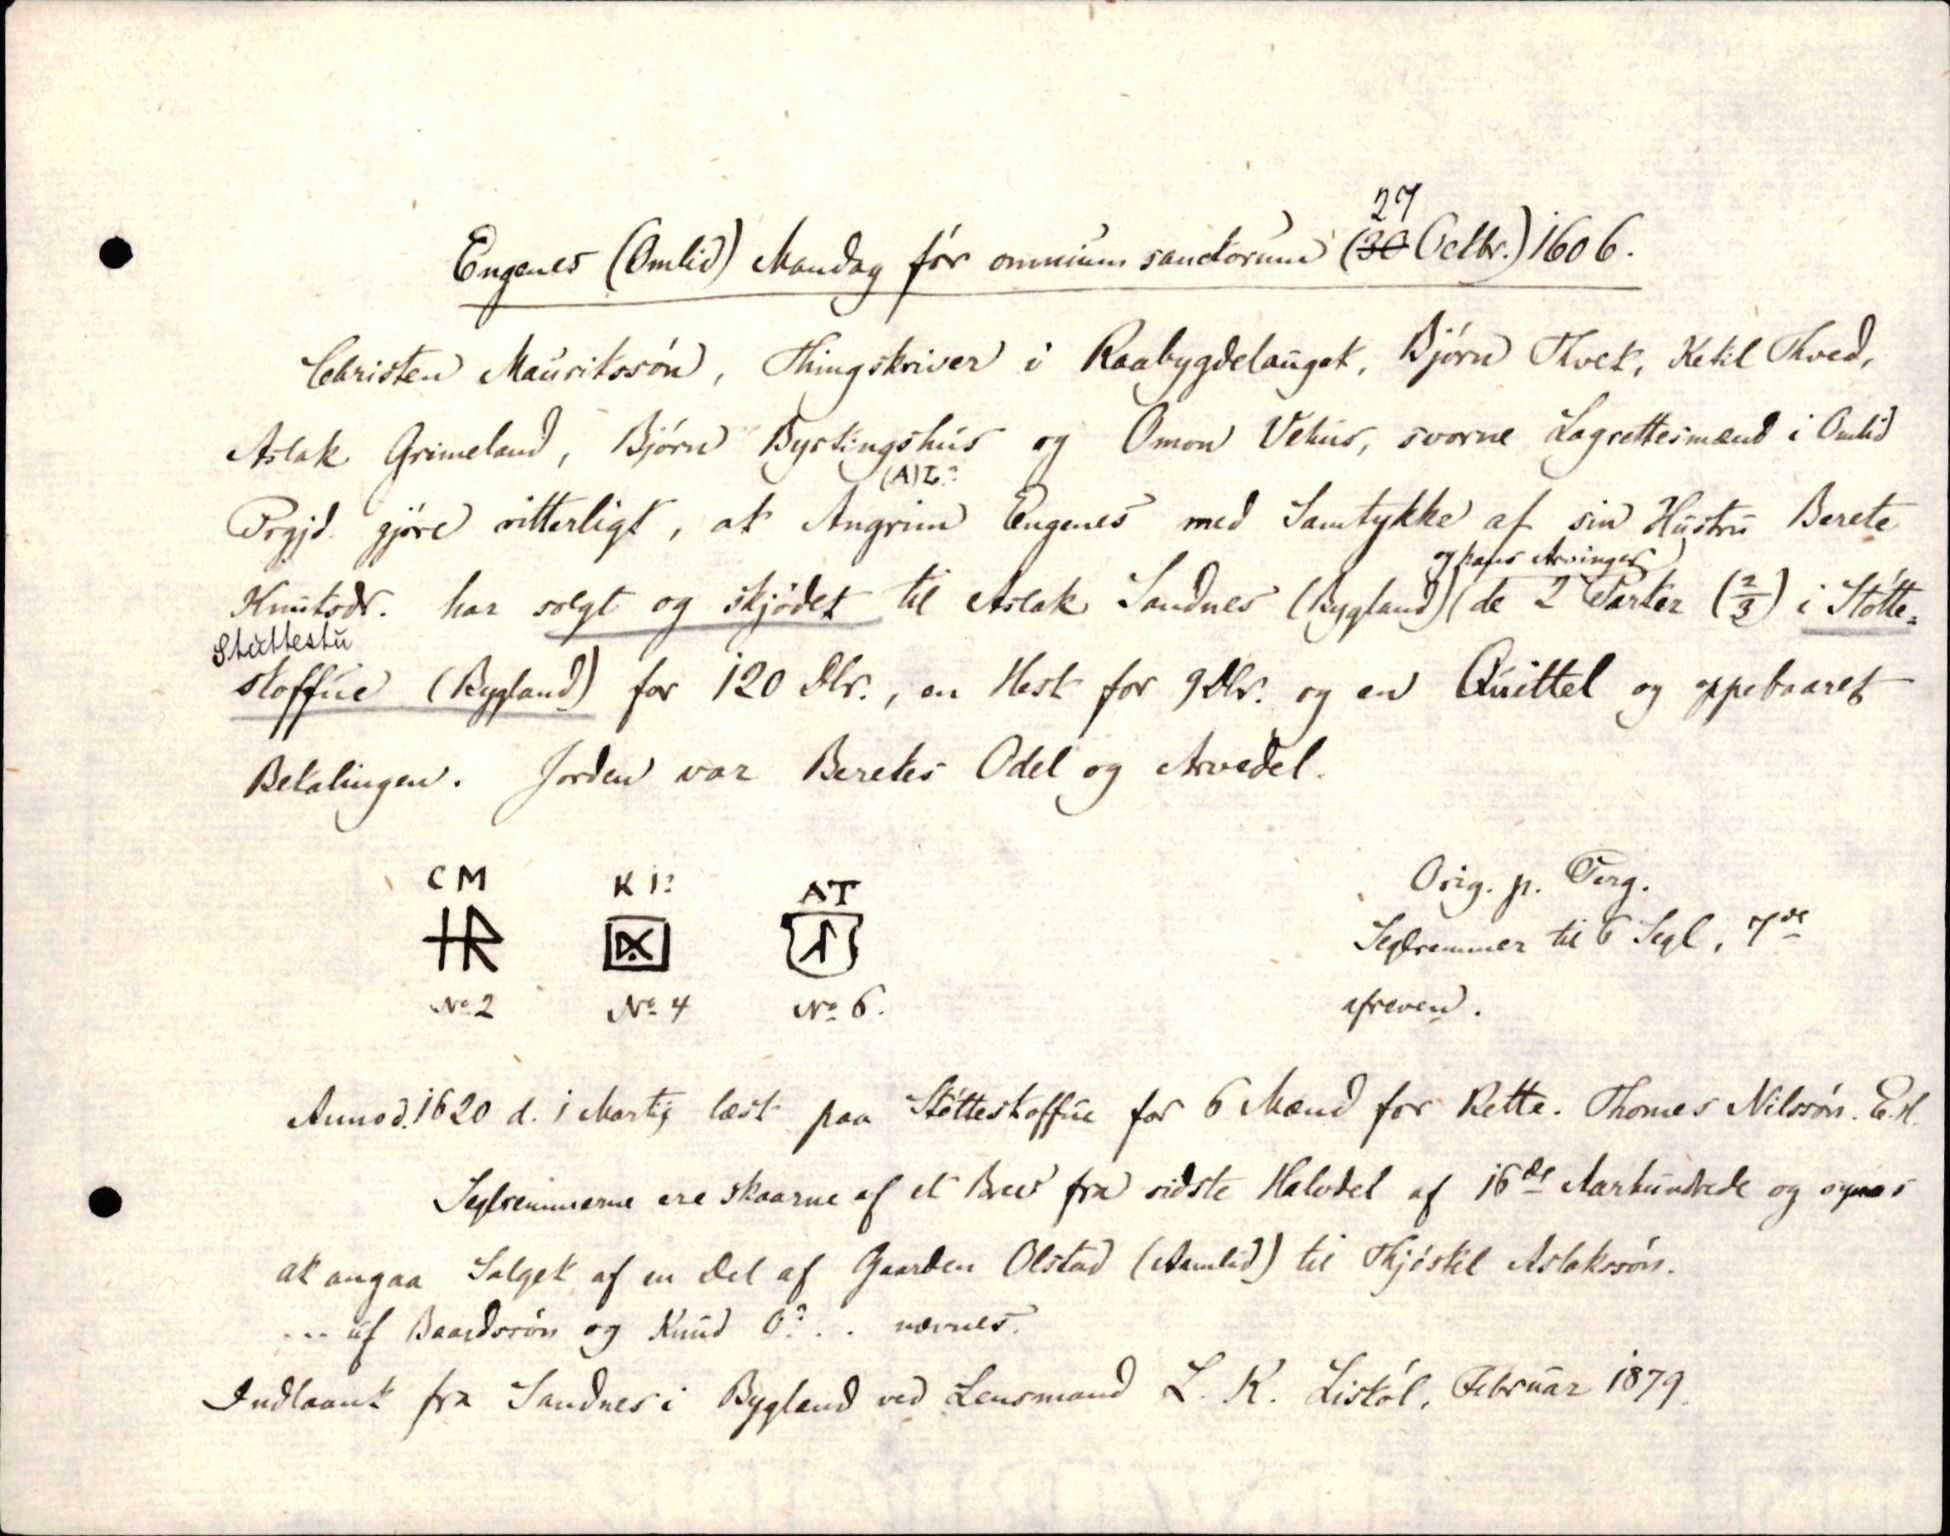 27
Engenes (Omlid) Mandag før omnium sanctorum (30 Octbr.) 1606.
Christen Mauritssøn, Thingskriver i Raabygdelauget, Bjørn Thvet, Ketil Thved,
Aslak Grimeland, Bjørn Bystingshus og Omon Vehus, svorne Lagrettesmænd i Omlid
(A)L?
Prgjd. gjøre vitterligt, at Angrim Engenes med Samtykke af sin Hustru Berete
og hans Arvinger
Knutsdr. har solgt og skjødet til Aslak Sandnes (Bygland) (de 2 Parter (2/3) i Støtte=
Stuttestu
stoffue (Bygland) for 120 Dlr., en Hest for 9 Dlr. og en Quittel og oppebaaret
Betalingen. Jorden var Beretes Odel og Arvedel.
CM K I? AT
No 2 No 4 No 6.
Orig. p. Perg.
Seglremmer til 6 Segl, 7de
afreven.
Anno d. 1620 d. 1 Martij læst paa Støttestoffue for 6 Mænd for Rette. Thomes Nilssøn. E.H.
Seglremmerne ere skaarne af et Brev fra sidste Halvdel af 16de Aarhundrede og synes
at angaa Salget af en Del af Gaarden Olstad (Aamlid) til Thjøstel Aslakssøn.
... uf Baardssøn og Knud O? .. nævnes.
Indlaant fra Sandnes i Bygland ved Lensmand L. K. Liskøl, Februar 1879.